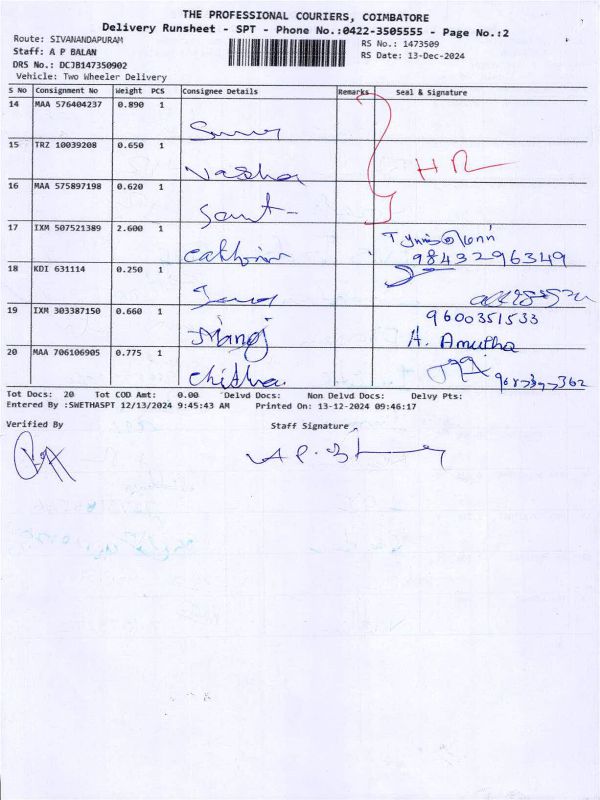 THE PROFESSIONAL COURIERS, COIMBATORE
Delivery Runsheet - SPT - Phone No.:0422-3505555 - Page No.:2
Route: SIVANANDAPURAM
RS No.: 1473509
Staff: A P BALAN
RS Date: 13-Dec-2024
DRS No.: DCJB147350902
Vehicle: Two Wheeler Delivery
S No Consignment No Weight PCS Consignee Details Remarks Seal & Signature
14 MAA 576404237 0.890 1
15 TRZ 10039208 0.650 1
Vasska HR
16 MAA 575897198 0.620 1
Sant-
17 IXM 507521389 2.600 1
Cathrin 9843296349
18 KDI 631114 0.250 1
19 IXM 303387150 0.660 1 9600351533
Manoj A. Amutha
20 MAA 706106905 0.775 1
Chithra
Tot Docs: 20 Tot COD Amt: 0.00 Delvd Docs: Non Delvd Docs: Delvy Pts:
Entered By :SWETHASPT 12/13/2024 9:45:43 AM Printed On: 13-12-2024 09:46:17
Verified By Staff Signature